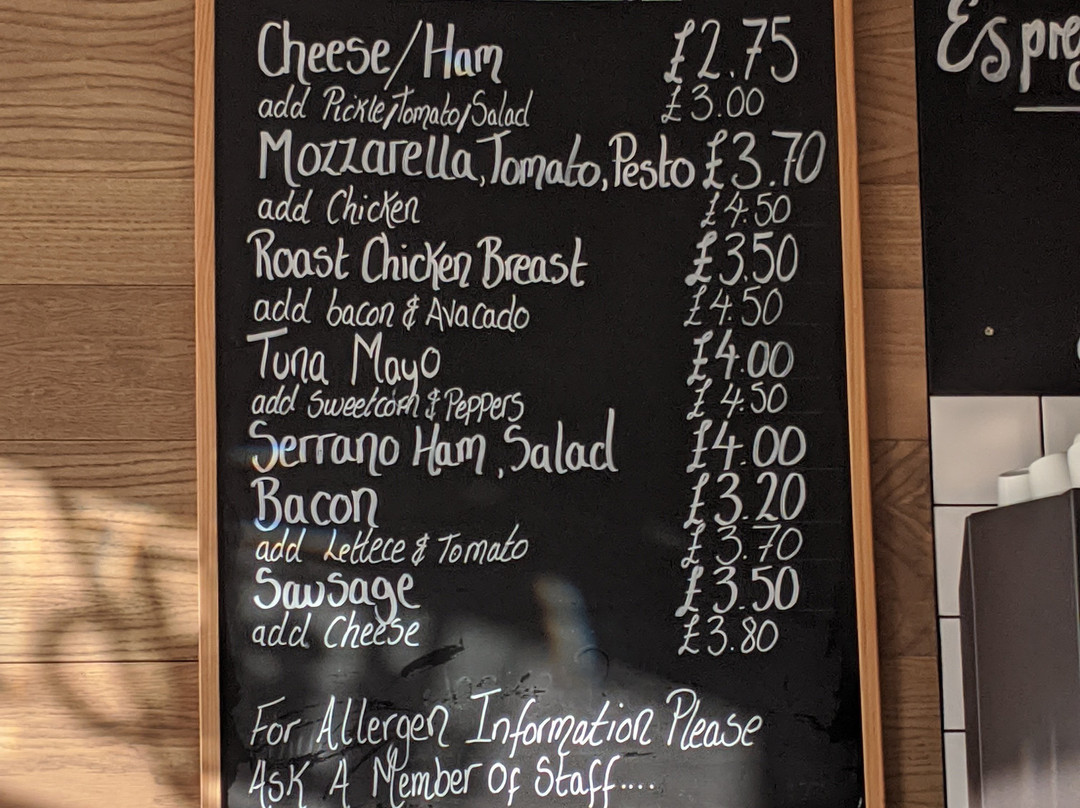 Cheese/Ham £2.75
add Pickle/Tomato/Salad £3.00
Mozzarella, Tomato, Pesto £3.70
add Chicken £4.50
Roast Chicken Breast £3.50
add bacon & Avacado £4.50
Tuna Mayo £4.00
add sweetcorn & Peppers £4.50
Serrano Ham, Salad £4.00
Bacon £3.20
add Lettece & Tomato £3.70
Sausage £3.50
add Cheese £3.80
For Allergen Information Please
Ask A Member Of Staff....
Espre